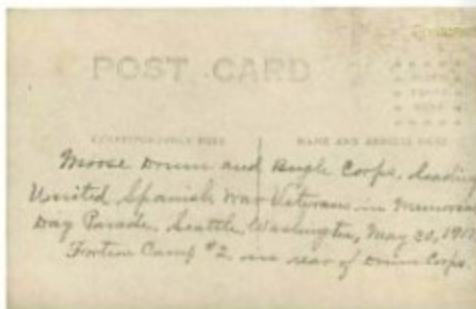 POST CARD
CORRESPONDENCE HERE
NAME AND ADDRESS HERE
Moose Drum and Bugle Corps, leading
United Spanish War Veterans in Memorial
Day Parade, Seattle, Washington, May 30,
Fortson Camp #2 in rear of Drum Corps.